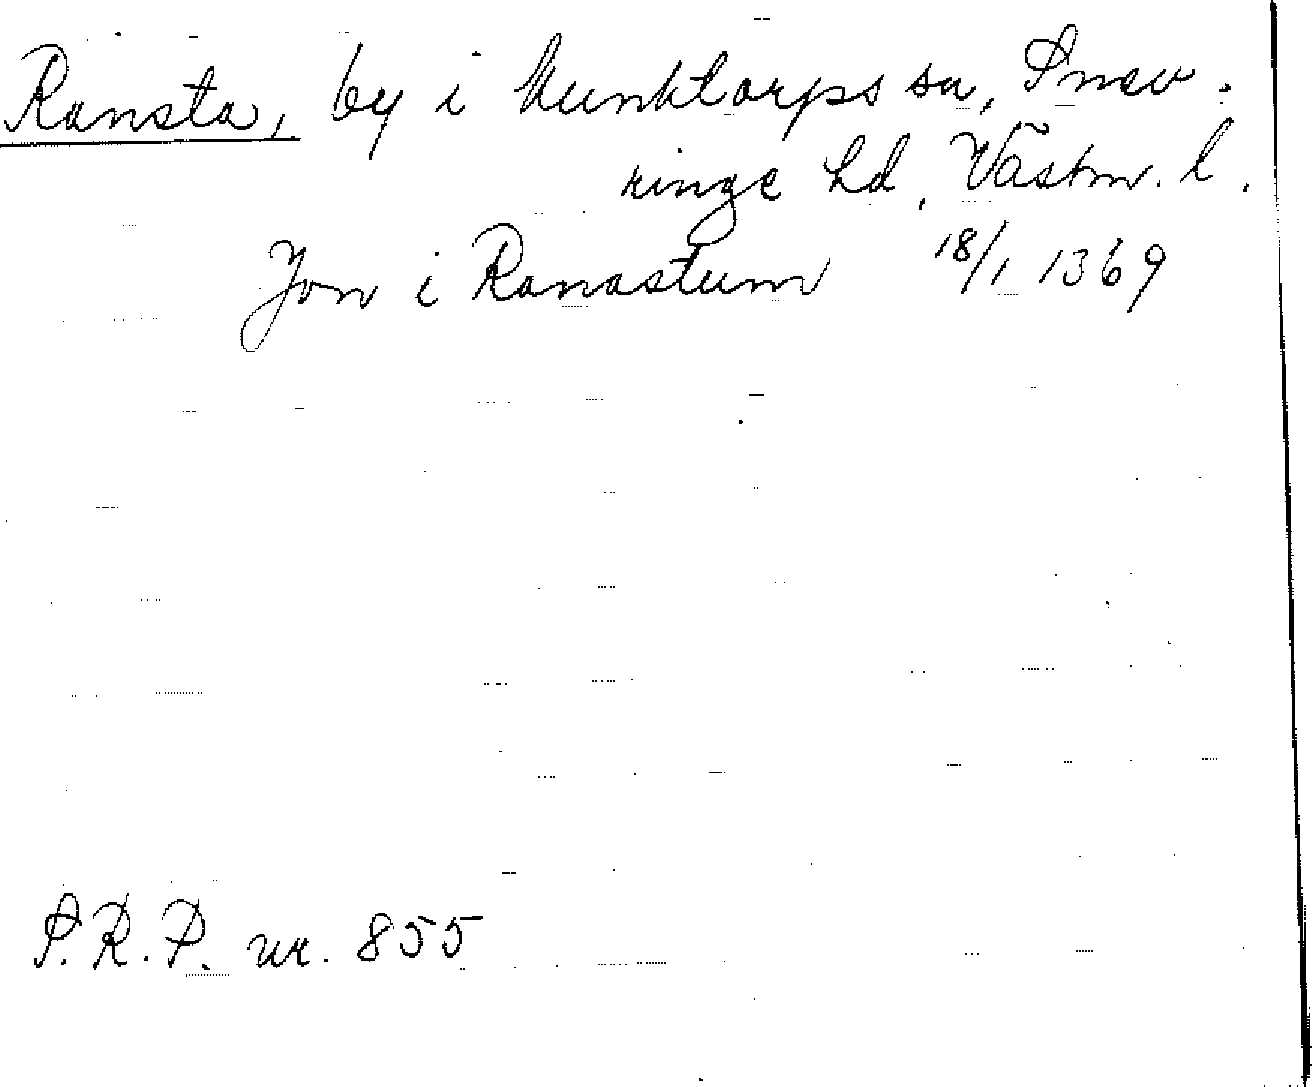 Ransta, by i Munktorps sn, Snev-
ringe hd, Västm. l.
Jon i Ranastum 18/1 1369
S.R.P. nr. 855